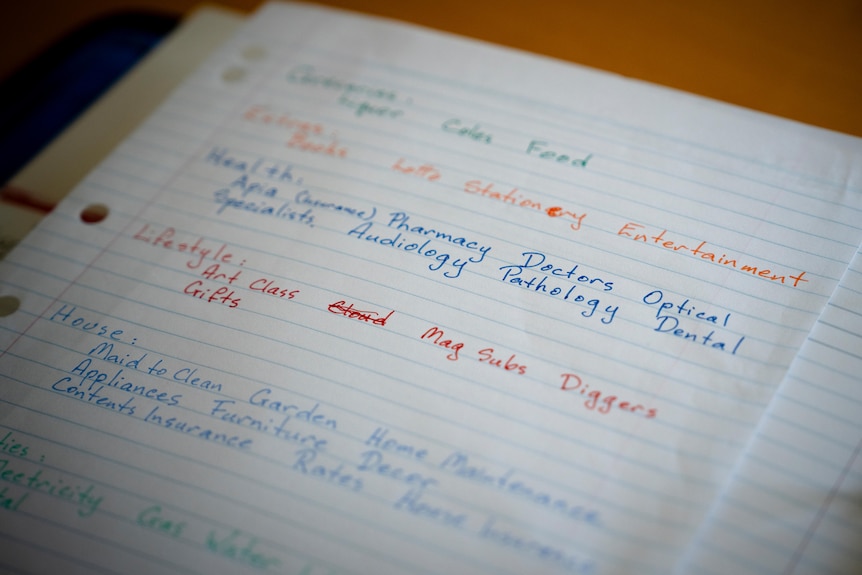 Groceries:
Liquor Coles Food
Extras:
Books Lotto Stationery Entertainment
Health:
Apia (insurance) Pharmacy Doctors Optical
Specialists. Audiology Pathology Dental
Lifestyle:
Art Class Cloud Mag Subs Diggers
Gifts
House:
Maid to Clean Garden Home Maintenance
Appliances Furniture Decor
Contents Insurance Rates House Insurance
ties:
lectricity Gas Water
tal